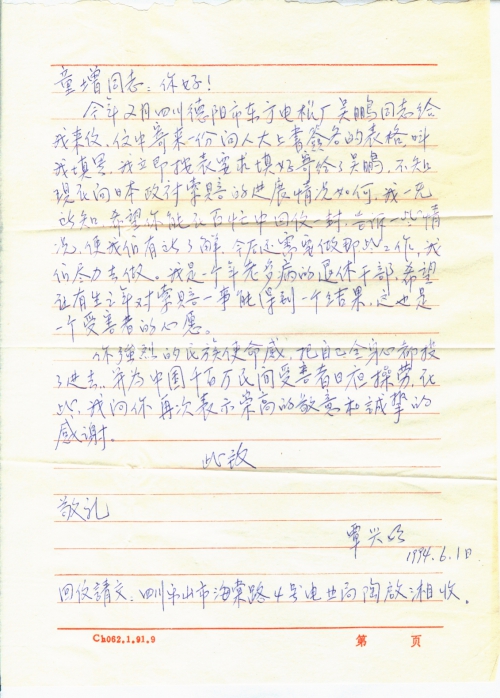 童增同志：你好！
今年2月四川德阳市东方电机厂吴鹏同志给
我来信，信中寄来一份向人大上書签名的表格叫
我填写，我立即按表要求填好寄给了吴鹏，不知
现在向日本政府索赔的进展情况如何，我一无
所知，希望你能在百忙中回信一封，告诉一些情
况，使我们有所了解，今后还需要做那些工作，我
们尽力去做。我是一个年老多病的退休干部，希望
在有生之年对索赔一事能得到一个结果，这也是
一个受害者的心愿。
你強烈的民族使命感，把自己全身心都投
了进去，并为中国千百万民间受害者日夜操劳，在
此，我向你再次表示崇高的敬意和誠挚的
感谢。
此致
敬礼
覃兴
1994.6.1日
回信請交：四川 山市海棠路4号电业局陶啟湘收。
Ch062.1.91.9
第 页